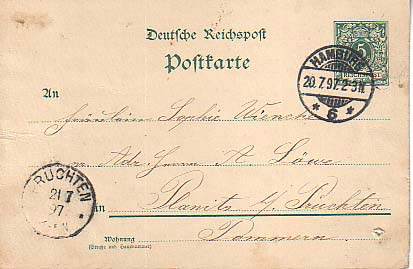 Deutsche Reichspost
Postkarte
5
HAMBURG
20.7.97. 2-3N
* 6 *
An
Fräulein Sophie Wienche
Adr. Herrn A. Löwe
RUCHTEN
21 7
97
N
in
Planitz b/ Pruchten
Wohnung
(Straße und Hausnummer)
Pommern